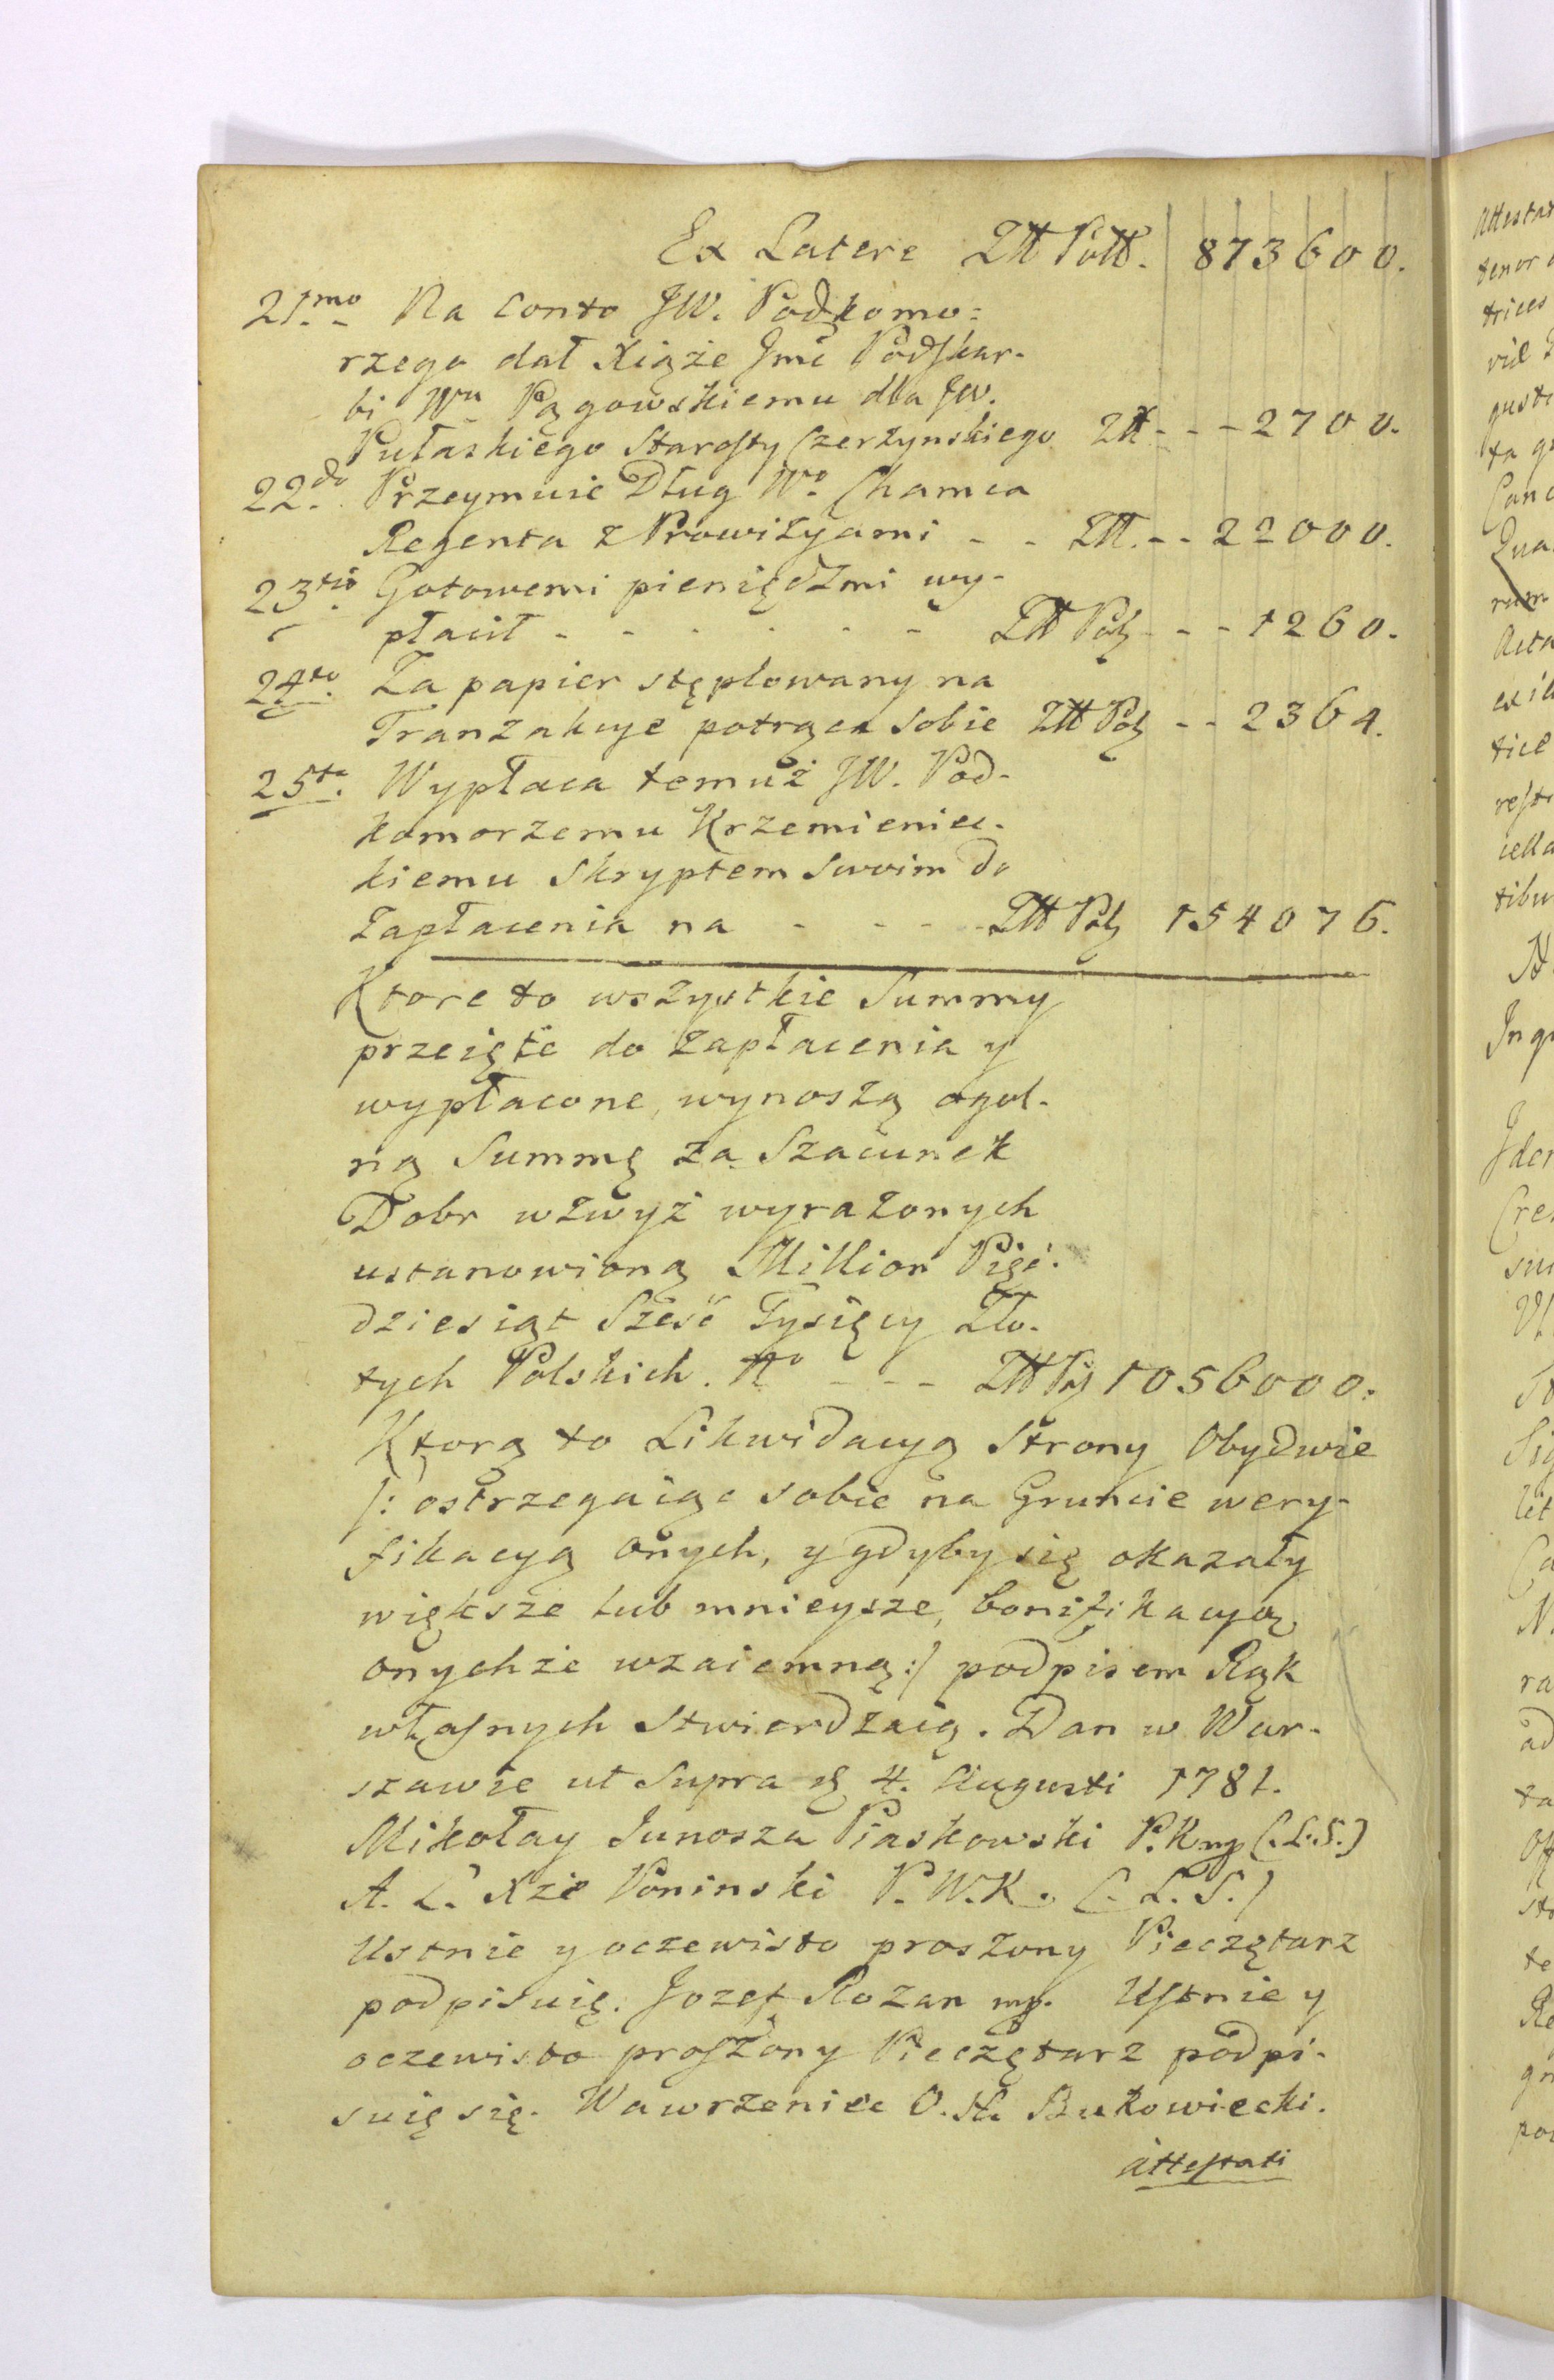 Ex Latere Ztt Pott. 873600.
21mo Na Conto JW. Podkomo=
rzego dał Xiąże Jmć Podskar-
bi Wu Pągowskiemu dla JW.
Pułaskiego Starosty Czerżynskiego Ztt - - - 2700.
22do Przeymuie Dług Wo Chamca
Regenta z Prowizyami - - Ztt. - - 22000.
23tio Gotowemi pieniędzmi wy-
płacił - - - - - - Ztt Pol - - - 1260.
24to Za papier stęplowany na
Tranzakcye potrąca sobie Ztt Pol - - 2364.
25to Wypłaca temuż JW. Pod-
komorzemu Krzemieniec-
kiemu Skryptem swoim do
zapłacenia na - - - - Ztt Pol 154076.
Ktore to wszystkie Summy
przeięte do zapłacenia y
wypłacone, wynoszą ogol-
ną Summę za Szacunek
Dobr wzwyż wyrażonych
ustanowioną Million Pięć-
dziesiąt Sześć Tysięcy Zło-
tych Polskich. No - - - Ztt Pol 1056000.
Ktorą to Likwidacyą Strony Obydwie
/: ostrzegaiąc sobie na Gruncie wery-
fikacyą onych, y gdyby się okazały
większe lub mnieysze, bonifikacyą
onychże wzaiemną :/ podpisem Rąk
własnych stwierdzaią. Dan w War-
szawie ut Supra d. 4. Augusti 1781.
Mikołay Junosza Piaskowski P.K mp (.L.S.)
A. Ł. Xże Poninski P.W.K. (. L. S.)
Ustnie y oczewisto proszony Pieczętarz
podpisuię. Jozef Rozan mp. Ustnie y
oczewisto proszony Pieczętarz podpi-
suię się. Wawrzeniec O. St. Bukowiecki.
Attestati